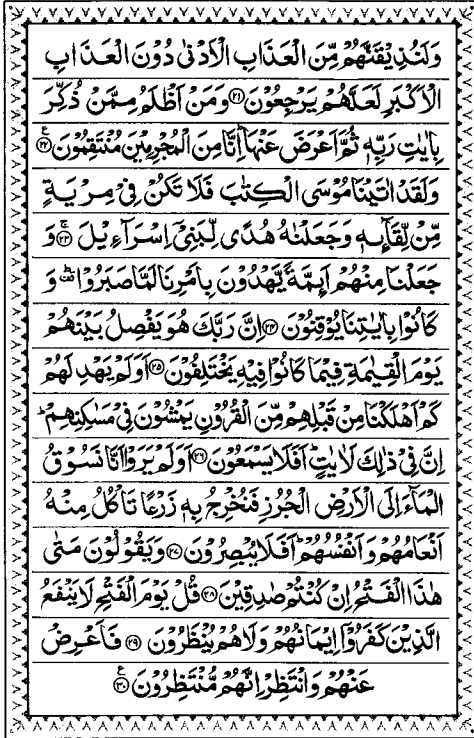 وَلَنُذِيْقَنَّهُمْ مِّنَ الْعَذَابِ الْاَدْنٰى دُوْنَ الْعَذَابِ
الْاَكْبَرِ لَعَلَّهُمْ يَرْجِعُوْنَ ﴿۲۱﴾ وَمَنْ اَظْلَمُ مِمَّنْ ذُكِّرَ
بِاٰيٰتِ رَبِّهٖ ثُمَّ اَعْرَضَ عَنْهَا ؕ اِنَّا مِنَ الْمُجْرِمِيْنَ مُنْتَقِمُوْنَ ﴿۲۲﴾ ع
وَلَقَدْ اٰتَيْنَا مُوْسَى الْكِتٰبَ فَلَا تَكُنْ فِيْ مِرْيَةٍ
مِّنْ لِّقَآئِهٖ وَجَعَلْنٰهُ هُدًى لِّبَنِيْٓ اِسْرَآءِيْلَ ﴿۲۳﴾ ج وَ
جَعَلْنَا مِنْهُمْ اَئِمَّةً يَّهْدُوْنَ بِاَمْرِنَا لَمَّا صَبَرُوْا ؕ وَ
كَانُوْا بِاٰيٰتِنَا يُوْقِنُوْنَ ﴿۲۴﴾ اِنَّ رَبَّكَ هُوَ يَفْصِلُ بَيْنَهُمْ
يَوْمَ الْقِيٰمَةِ فِيْمَا كَانُوْا فِيْهِ يَخْتَلِفُوْنَ ﴿۲۵﴾ اَوَلَمْ يَهْدِ لَهُمْ
كَمْ اَهْلَكْنَا مِنْ قَبْلِهِمْ مِّنَ الْقُرُوْنِ يَمْشُوْنَ فِيْ مَسٰكِنِهِمْ ؕ
اِنَّ فِيْ ذٰلِكَ لَاٰيٰتٍ ؕ اَفَلَا يَسْمَعُوْنَ ﴿۲۶﴾ اَوَلَمْ يَرَوْا اَنَّا نَسُوْقُ
الْمَآءَ اِلَى الْاَرْضِ الْجُرُزِ فَنُخْرِجُ بِهٖ زَرْعًا تَاْكُلُ مِنْهُ
اَنْعَامُهُمْ وَاَنْفُسُهُمْ ؕ اَفَلَا يُبْصِرُوْنَ ﴿۲۷﴾ وَيَقُوْلُوْنَ مَتٰى
هٰذَا الْفَتْحُ اِنْ كُنْتُمْ صٰدِقِيْنَ ﴿۲۸﴾ قُلْ يَوْمَ الْفَتْحِ لَا يَنْفَعُ
الَّذِيْنَ كَفَرُوْٓا اِيْمَانُهُمْ وَلَا هُمْ يُنْظَرُوْنَ ﴿۲۹﴾ فَاَعْرِضْ
عَنْهُمْ وَانْتَظِرْ اِنَّهُمْ مُّنْتَظِرُوْنَ ﴿۳۰﴾ ع